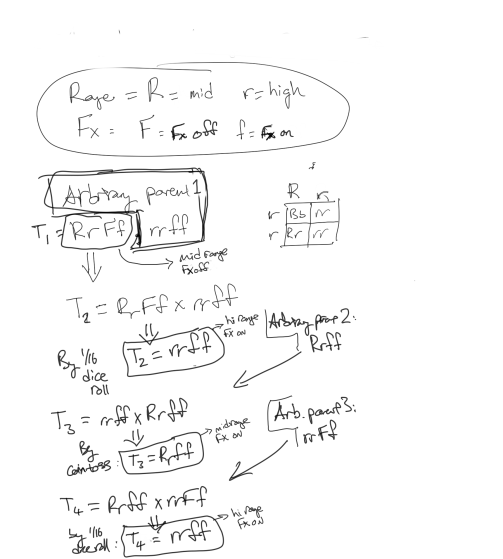 Range = R = mid r = high
Fx = F = Fx off f = Fx on
Arbitrary parent 1
T1 = RrFf rrff
mid range
Fx off
R r
r Bb rr
r Rr rr
T2 = RrFf x rrff
By 1/16
dice
roll
T2 = rrff
hi range
Fx on
Arbitrary parent 2:
Rrff
T3 = rrff x Rrff
By
coin toss:
T3 = Rrff
midrange
Fx on
Arb. parent 3:
rrFf
T4 = Rrff x rrFf
by 1/16
dice roll:
T4 = rrff
hi range
Fx on